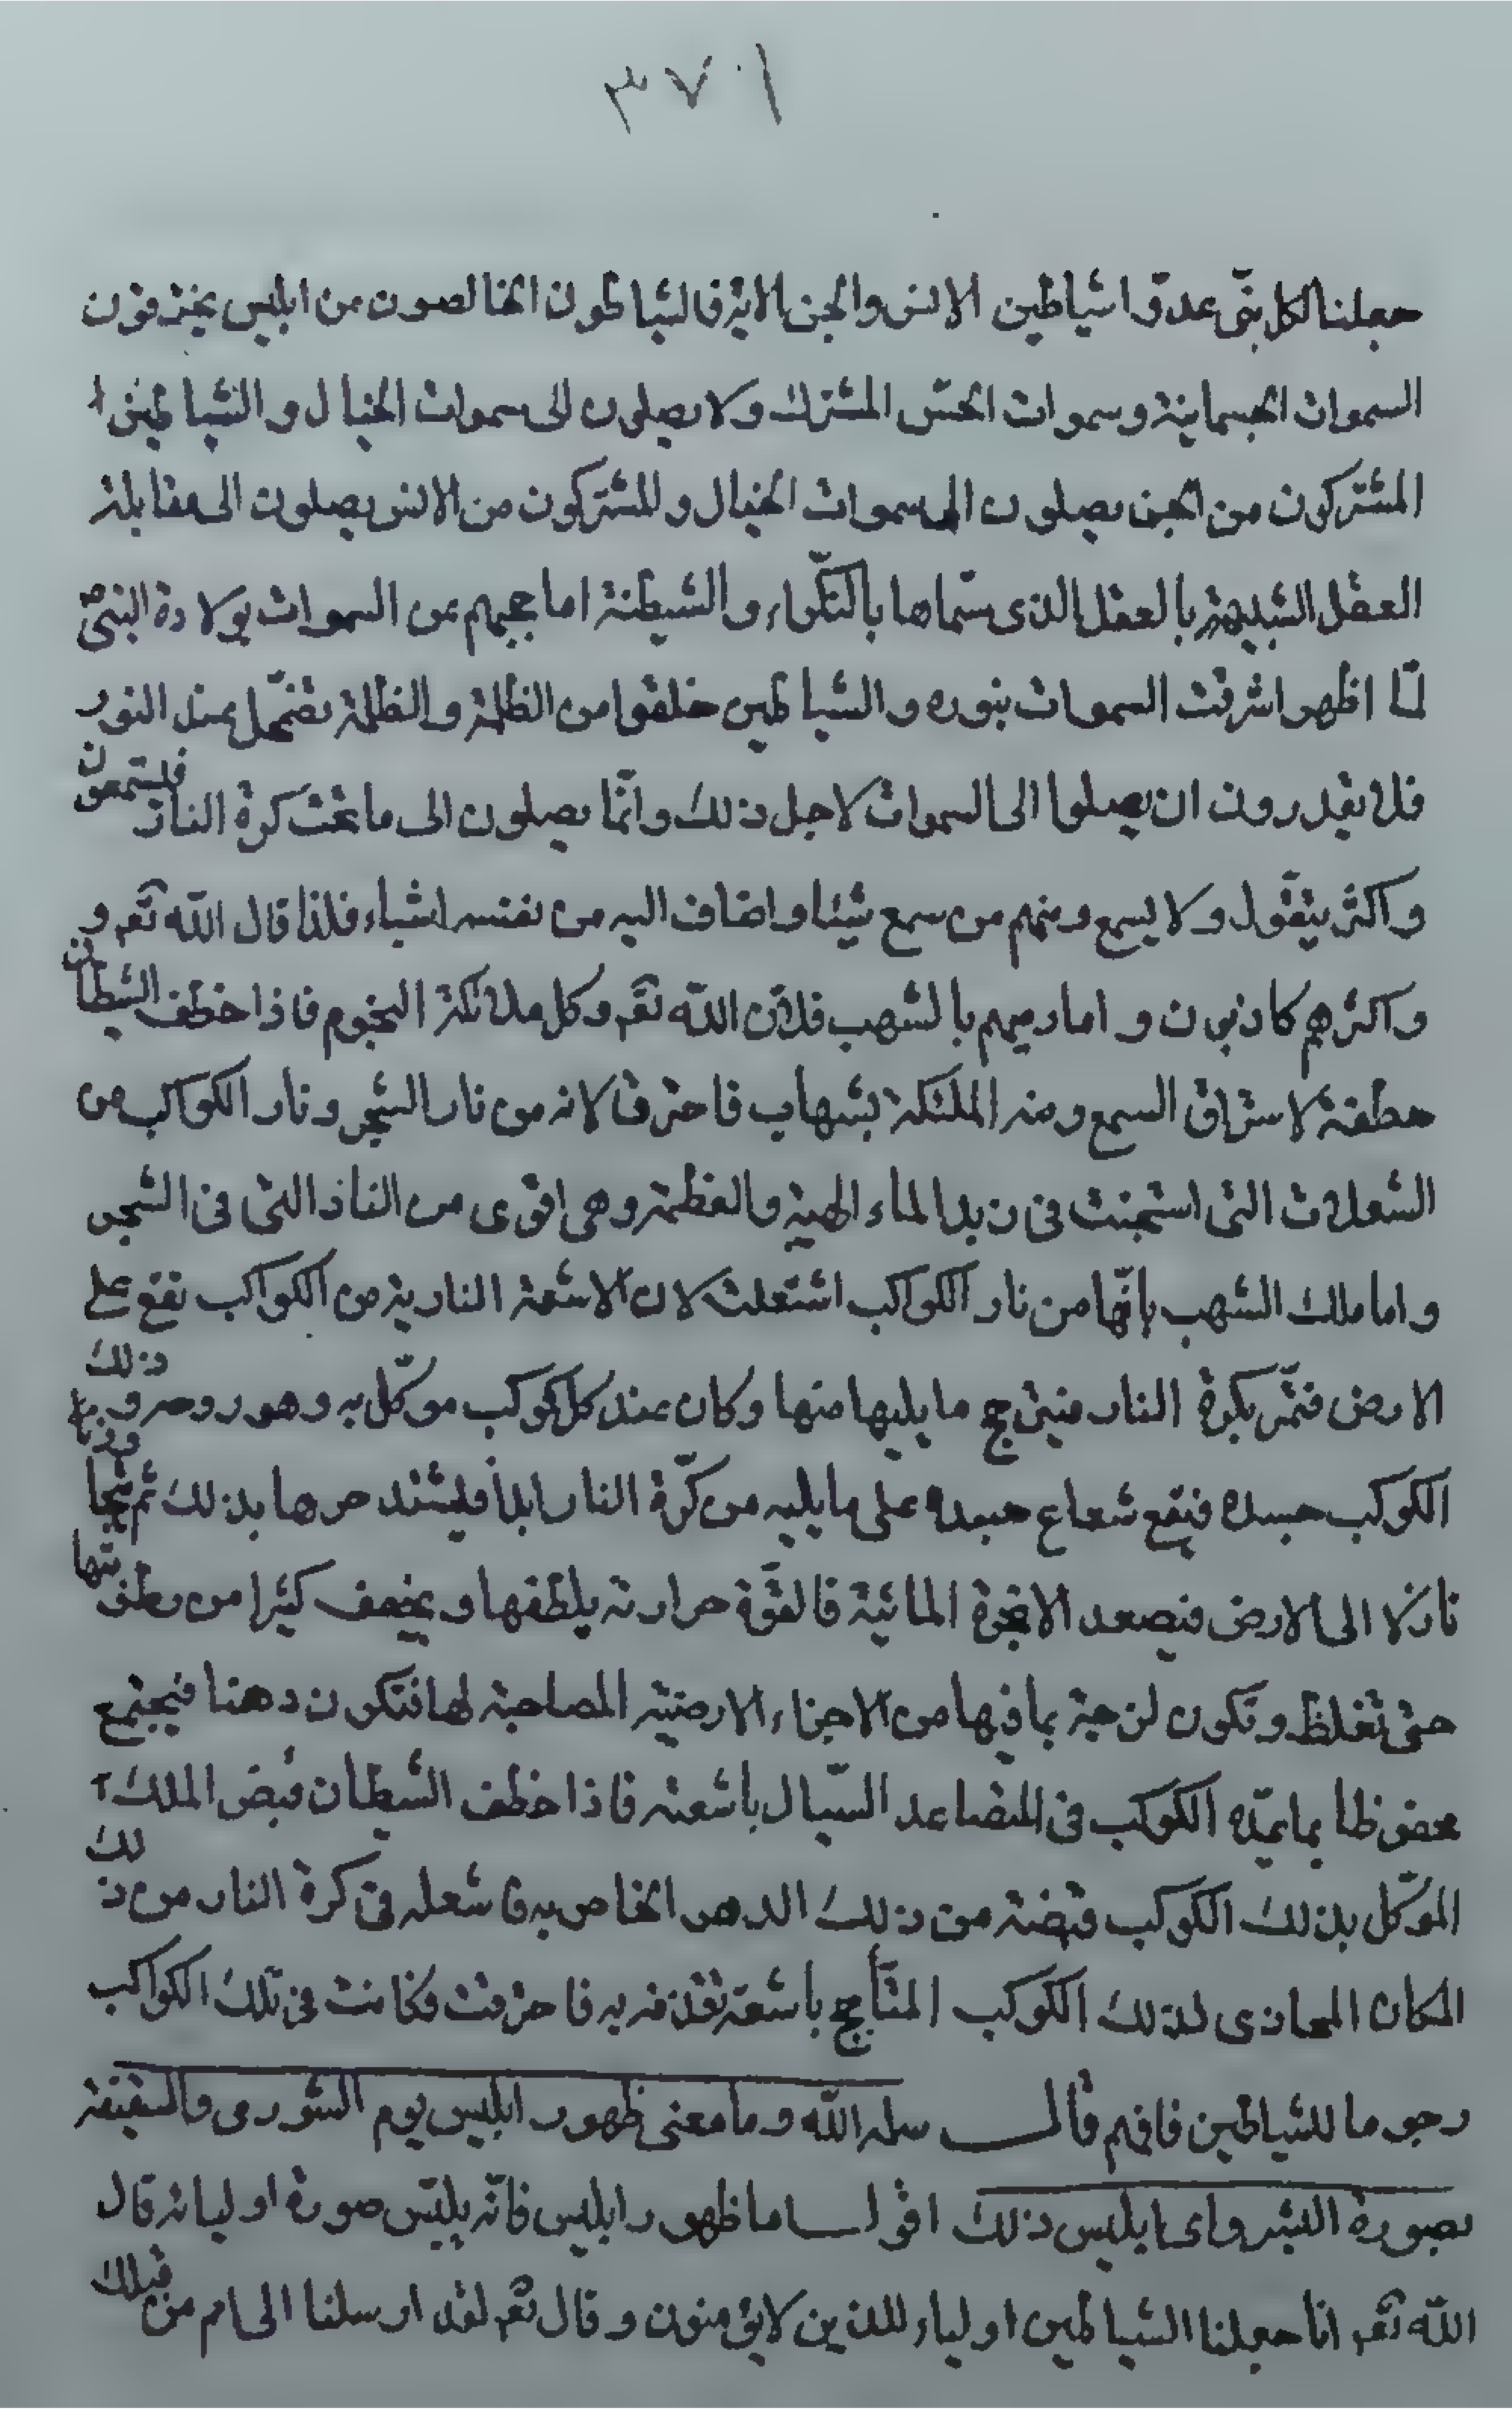 ٣٧٠١
جعلنا لكل نبى عدوّا شياطين الانس والجن الاية فالشياطون الخالصون من ابليس يخترقون
السموات الجسمانية وسموات الحسّ المشترك ولا يصلون الى سموات الخيال والشياطين
المشتركون من الجن يصلون الى سموات الخيال والمشتركون من الانس يصلون الى مقابلة
العقل الشبيهة بالعقل الذى سمّاها بالنكراء والشيطنة اما حجبهم عن السموات بولادة النبىّ ص
لمّا اظهر اشرقت السموات بنوره والشياطين خلقوا من الظلمة والظلمة تضمحّل عند النور
فلا يقدرون ان يصلوا الى السموات لاجل ذلك وانّما يصلون الى ما تحت كرة النار فيستمعون
واكثر يتقّول ولا يسمع ومنهم من سمع شيئا واضاف اليه من نفسه اشياء فلذا قال الله تعم و
واكثرهم كاذبون و اما رميهم بالشهب فلانّ الله تعم وكل ملائكة النجوم فاذا خطف الشيطان
خطفة لاستراق السمع ومنه الملئكة بشهاب فاحترق لانه من نار الشجر ونار الكواكب من
الشعلات التى استجنت فى زبد الماء الهيبة والعظمة وهى اقوى من النار التى فى الشجر
واما ملك الشهب بانّها من نار الكواكب اشتعلت لان الاشعة النارية من الكواكب تقع على
الارض فتمّر بكرة النار فيتاجج ما يليها منها وكان عند كل كوكب موكّل به وهو روحه و ذلك
الكوكب جسده فتقع شعاع جسده على ما يليه من كرّة النار ابدا فيشتد حرها بذلك ثم
نازلا الى الارض فيصعد الابخرة المائية فالقوّة حرارته يلطفها ويخفف كثيرا من
حتى تغلظ وتكون لزجة بما فيها من الاجزاء الارضية المصاحبة لها فتكون دهنا فيجتمع
محفوظا بما يمدّه الكوكب فى المتصاعد السيّال باشعته فاذا خطف الشيطان قبض الملك
الموكّل بذلك الكوكب قبضة من ذلك الدهن الخاص به فاشعله فى كرة النار من ذلك
المكان المحاذى لذلك الكوكب المتأجج باشعته فقذفه به فاحرقت فكانت فى تلك الكواكب
رجوما للشياطين فافهم قال سلمه الله وما معنى ظهور ابليس يوم الشورى والسقيفة
بصورة البشر واى ابليس ذلك اقول اما ظهور ابليس فانّه يلبس صورة اوليائه قال
الله تعم انا جعلنا الشياطين اولياء للذين لايؤمنون وقال تعم لقد ارسلنا الى امم من قبلك